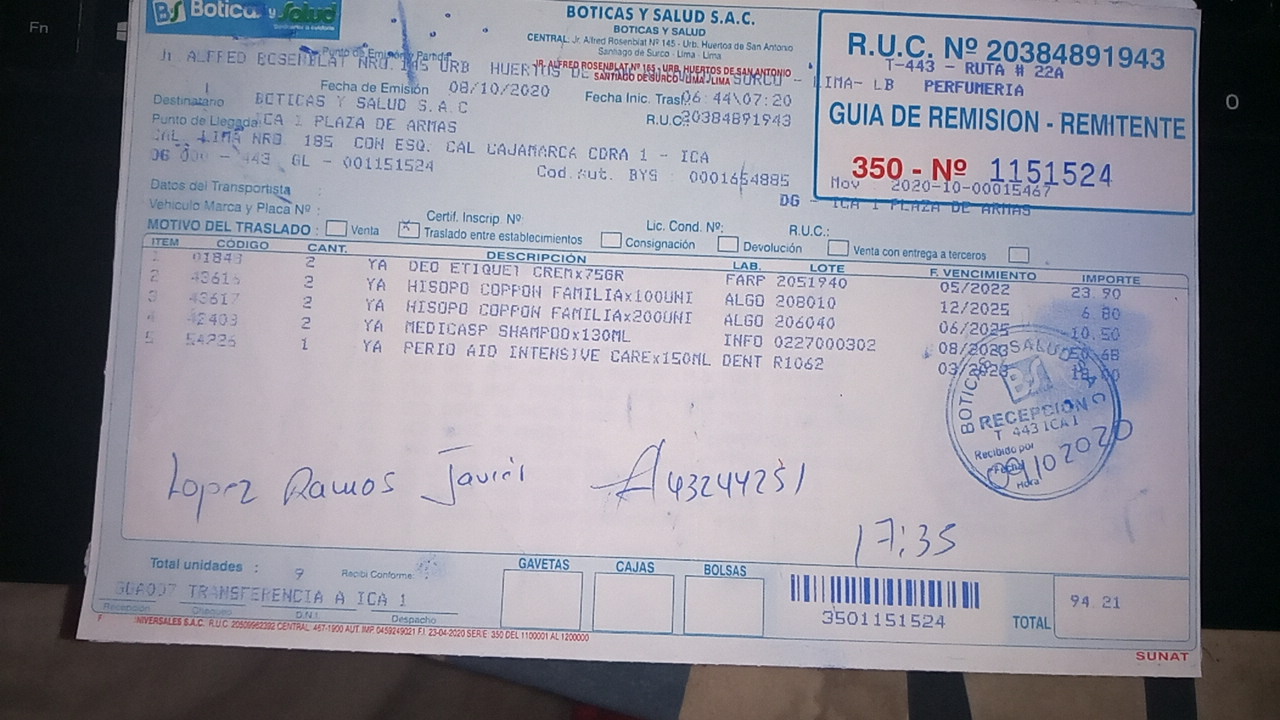 Fn
BS Boticas y Salud
BOTICAS Y SALUD S.A.C.
BOTICAS Y SALUD
CENTRAL: Jr. Alfred Rosenblat Nº 145 - Urb. Huertos de San Antonio
Santiago de Surco - Lima - Lima
R.U.C. Nº 20384891943
T-443 - RUTA # 22A
LIMA- LB PERFUMERIA
GUIA DE REMISION - REMITENTE
350 - Nº 1151524
Mov 2020-10-00015467
DG - ICA 1 PLAZA DE ARMAS
Punto de Emisión Partida
Jr ALFRED ROSENBLAT NRO. 145 URB HUERTOS DE
JR. ALFRED ROSENBLAT Nº 165 - URB. HUERTOS DE SAN ANTONIO
SANTIAGO DE SURCO - LIMA - LIMA
SURCO -
Fecha de Emisión 08/10/2020
Fecha Inic. Trasl. 06:44\07:20
Destinatario BOTICAS Y SALUD S.A.C
R.U.C. 20384891943
Punto de Llegada ICA 1 PLAZA DE ARMAS
CAL. LIMA NRO 185 CON ESQ. CAL CAJAMARCA CDRA 1 - ICA
DG 000 - 443 GL - 001151524
Cod.Aut. BYS : 0001654885
Datos del Transportista :
Vehículo Marca y Placa Nº :
Certif. Inscrip. Nº:
Lic. Cond. Nº:
R.U.C.:
MOTIVO DEL TRASLADO : Venta X Traslado entre establecimientos Consignación Devolución Venta con entrega a terceros
ITEM CÓDIGO CANT. DESCRIPCIÓN LAB. LOTE F. VENCIMIENTO IMPORTE
1 01843 2 YA DEO ETIQUET CREMx75GR FARP 2051940 05/2022 23.90
2 43616 2 YA HISOPO COPPON FAMILIAx100UNI ALGO 208010 12/2025 6.80
3 43617 2 YA HISOPO COPPON FAMILIAx200UNI ALGO 206040 06/2025 10.50
4 42403 2 YA MEDICASP SHAMPOOx130ML INFO 0227000302 08/2023
5 54226 1 YA PERIO AID INTENSIVE CAREx150ML DENT R1062 03/2023
BOTICAS Y SALUD S.A.C
BS
RECEPCION
T 443 ICA 1
Recibido por
Fecha
09/10 2020
Hora
Lopez Ramos Javier 43244251
17:35
Total unidades : 9
Recibí Conforme:
GUA007 TRANSFERENCIA A ICA 1
Recepción Chequeo D.N.I. Despacho
GAVETAS
CAJAS
BOLSAS
3501151524
TOTAL 94.21
NIVERSALES S.A.C. R.U.C. 20509962392 CENTRAL: 467-1900 AUT. IMP. 0459249021 F.I. 23-04-2020 SERIE 350 DEL 1100001 AL 1200000
SUNAT